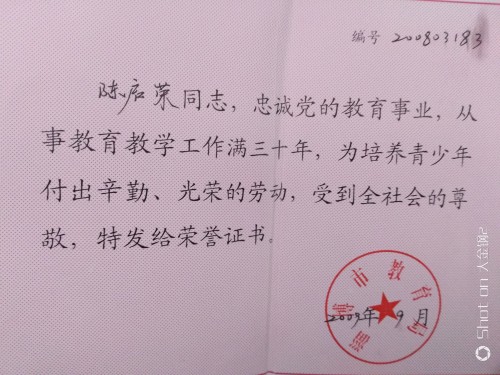 编号 200803183
陈启荣同志，忠诚党的教育事业，从
事教育教学工作满三十年，为培养青少年
付出辛勤、光荣的劳动，受到全社会的尊
敬，特发给荣誉证书。
淄博市教育局
2009年 9 月
Shot on 大金钢2